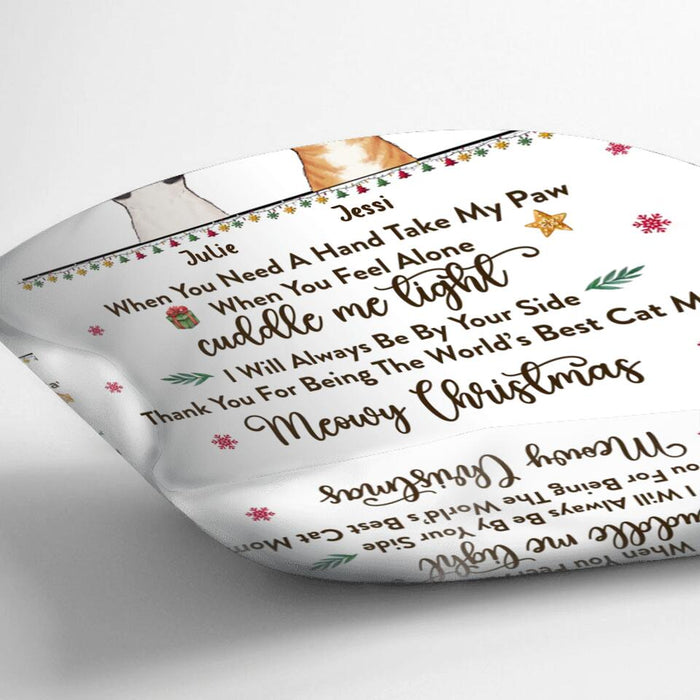 Jessi
Julie
When You Need A Hand Take My Paw
When You Feel Alone
cuddle me tight
I Will Always Be By Your Side
Thank You For Being The World's Best Cat M
Meowy Christmas
Meowy Christmas
ou For Being The World's Best Cat Mom
I Will Always Be By Your Side
uddle me tight
When You Feel